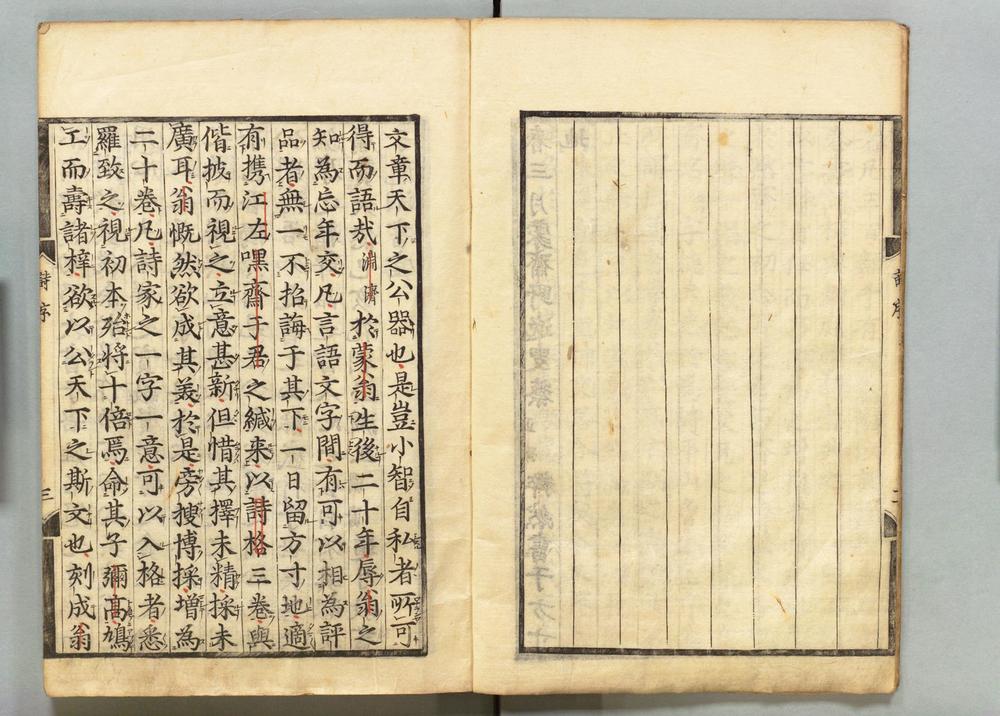 文章天下之公器也是豈小智自私者所可
得而語哉淵濟於蒙翁生後二十年辱翁之
知為忘年交凡言語文字間有可以相為評
品者無一不招誨于其下一日留方寸地適
有攜江左嘿齋于君之緘來以詩格三卷與
偕披而視之立意甚新但惜其擇未精採未
廣耳翁慨然欲成其美於是旁搜博採增為
二十卷凡詩家之一字一意可以入格者悉
羅致之視初本殆將十倍焉命其子彌高鳩
工而壽諸梓欲以公天下之斯文也刻成翁
詩序
三